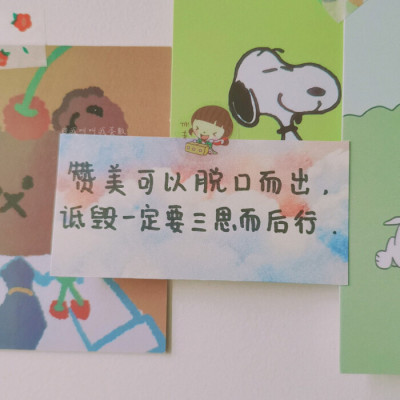 赞美可以脱口而出，
诋毁一定要三思而后行．